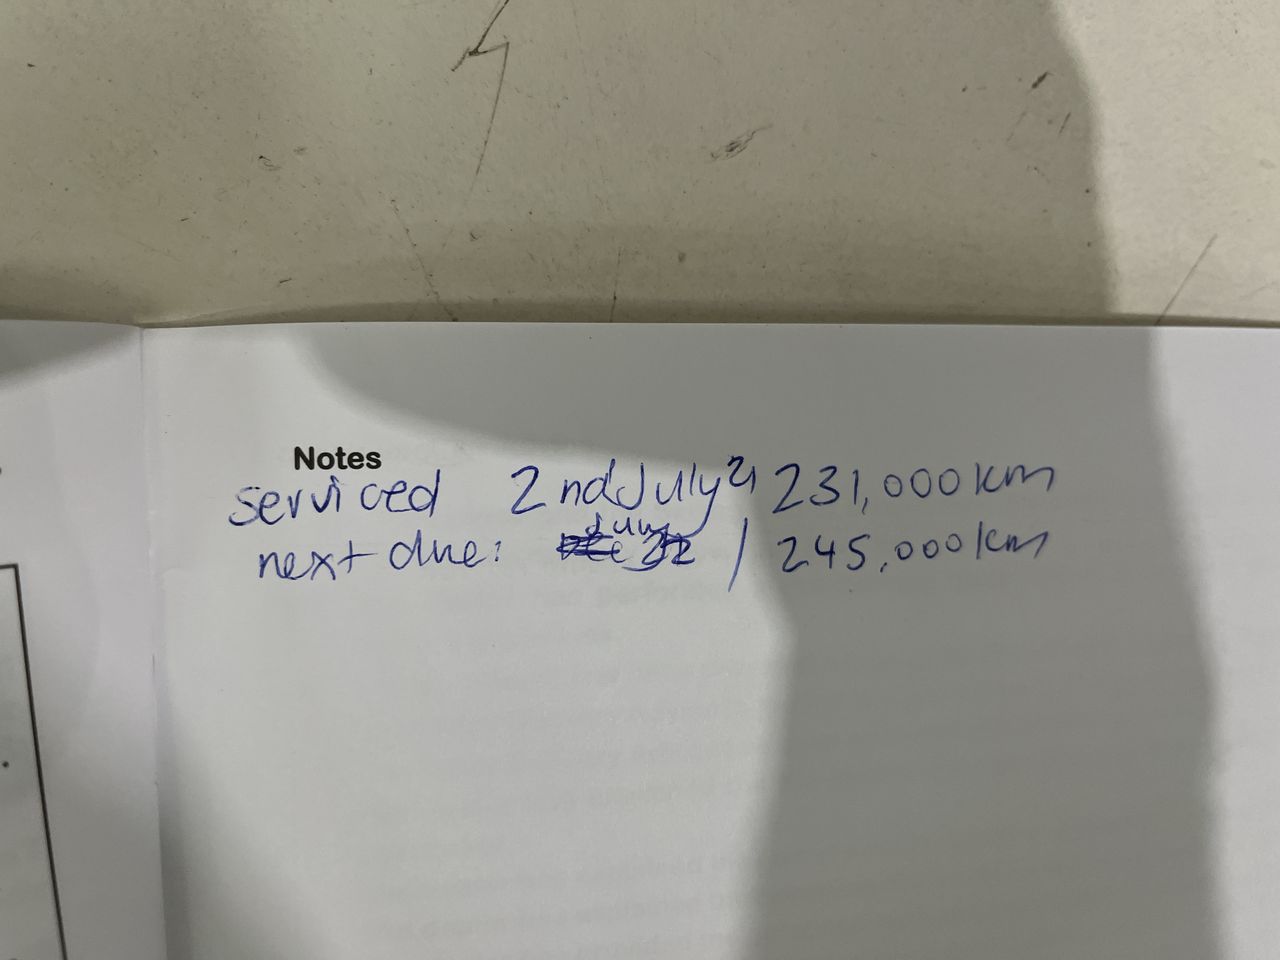 Notes
serviced 2nd July 21 231,000 km
next due: July 22 / 245,000 km